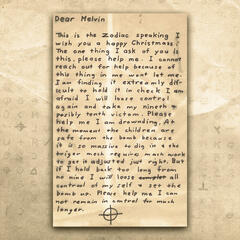 Dear Melvin
This is the Zodiac speaking I
wish you a happy Christmass.
The one thing I ask of you is
this, please help me. I cannot
reach out for help because of
this thing in me wont let me.
I am finding it extreamly dif-
icult to hold it in check I am
afraid I will loose control
again and take my nineth +
posibly tenth victom. Please
help me I am drownding. At
the moment the children are
safe from the bomb because
it is so massive to dig in & the
triger mech requires much work
to get it adjusted just right. But
if I hold back too long from
no nine I will loose all
control of my self + set the
bomb up. Please help me I can
not remain in control for much
longer.